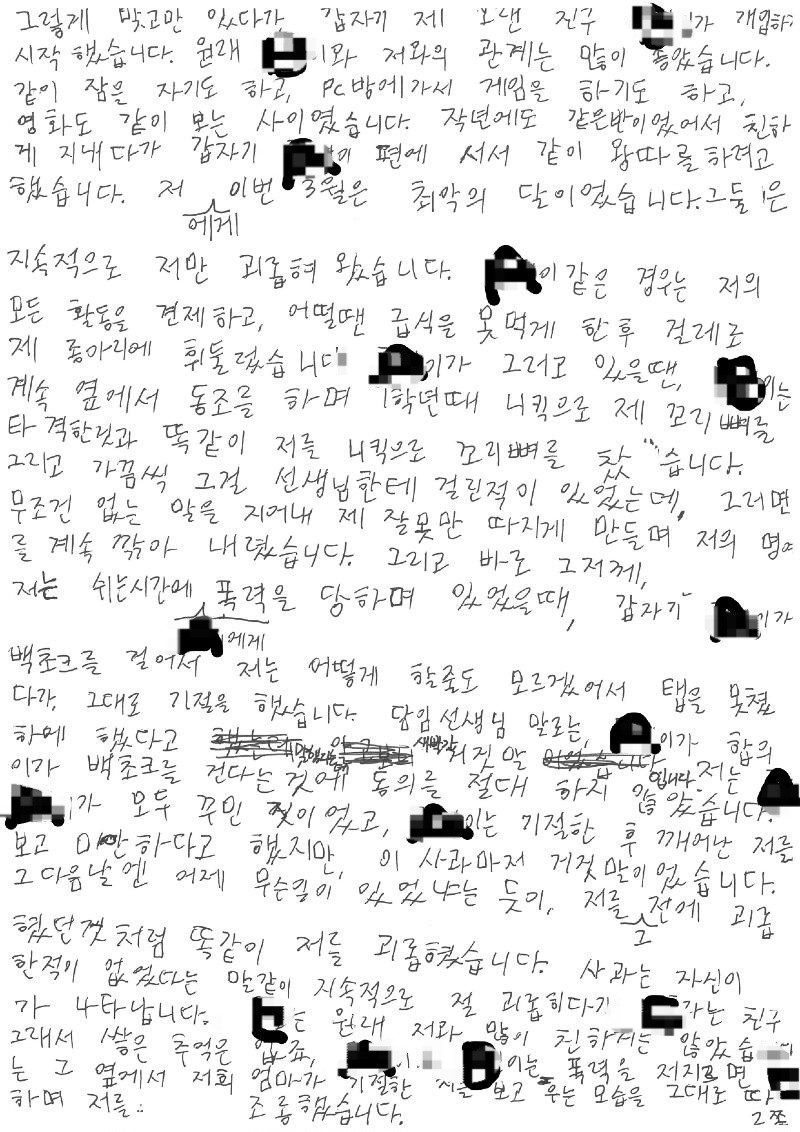 그렇게 맞고만 있다가, 갑자기 제 친구 가 개입하
시작 했습니다. 원래 와 저와의 관계는 많이 좋았습니다.
같이 잠을 자기도 하고, PC방에가서 게임을 하기도 하고,
영화도 같이 보는 사이였습니다. 작년에도 같은반이었어서 친하
게 지내다가 갑자기 이 편에 서서 같이 왕따를 하려고
했습니다. 저에게 이번 3월은 최악의 달이었습니다. 그들은
지속적으로 저만 괴롭혀 왔습니다. 이 같은 경우는 저의
모든 활동을 견제하고, 어떨땐 급식을 못먹게 한후 걸레로
제 종아리에 휘둘렀습니다 이가 그러고 있을땐, 이는
계속 옆에서 동조를 하며 1학년때 니킥으로 제 꼬리뼈를
타격한것과 똑같이 저를 니킥으로 꼬리뼈를 찼습니다.
그리고 가끔씩 그걸 선생님한테 걸린적이 있었는데, 그러면
무조건 없는 말을 지어내 제 잘못만 따지게 만들며 저의 명예
를 계속 깎아 내렸습니다. 그리고 바로 그저께,
저는 쉬는시간에 에게 폭력을 당하며 있었을때, 갑자기 이가
백초크를 걸어서 저는 어떻게 할줄도 모르겠어서 탭을 못쳤
다가, 그대로 기절을 했습니다. 담임선생님 말로는, 이가 합의
하에 했다고 새빨간 거짓말 입니다. 저는
이가 백초크를 건다는것에 동의를 절대 하지 않았습니다.
이가 모두 꾸민 짓이었고, 이는 기절한 후 깨어난 저를
보고 미안하다고 했지만, 이 사과마저 거짓말이었습니다.
그다음날엔 어제 무슨일이 있었냐는 듯이, 저를 그 전에 괴롭
혔던것처럼 똑같이 저를 괴롭혔습니다. 사과는 자신이
한적이 없었다는 말같이 지속적으로 절 괴롭히다가 가는 친구
가 나타납니다. 는 원래 저와 많이 친하지는 않았습
그래서 쌓은 추억은 없죠, 이는 폭력을 저지르면
는 그 옆에서 저희 엄마가 기절한 저를 보고 우는 모습을 그대로 따
하며 저를 조롱했습니다. 그쪽